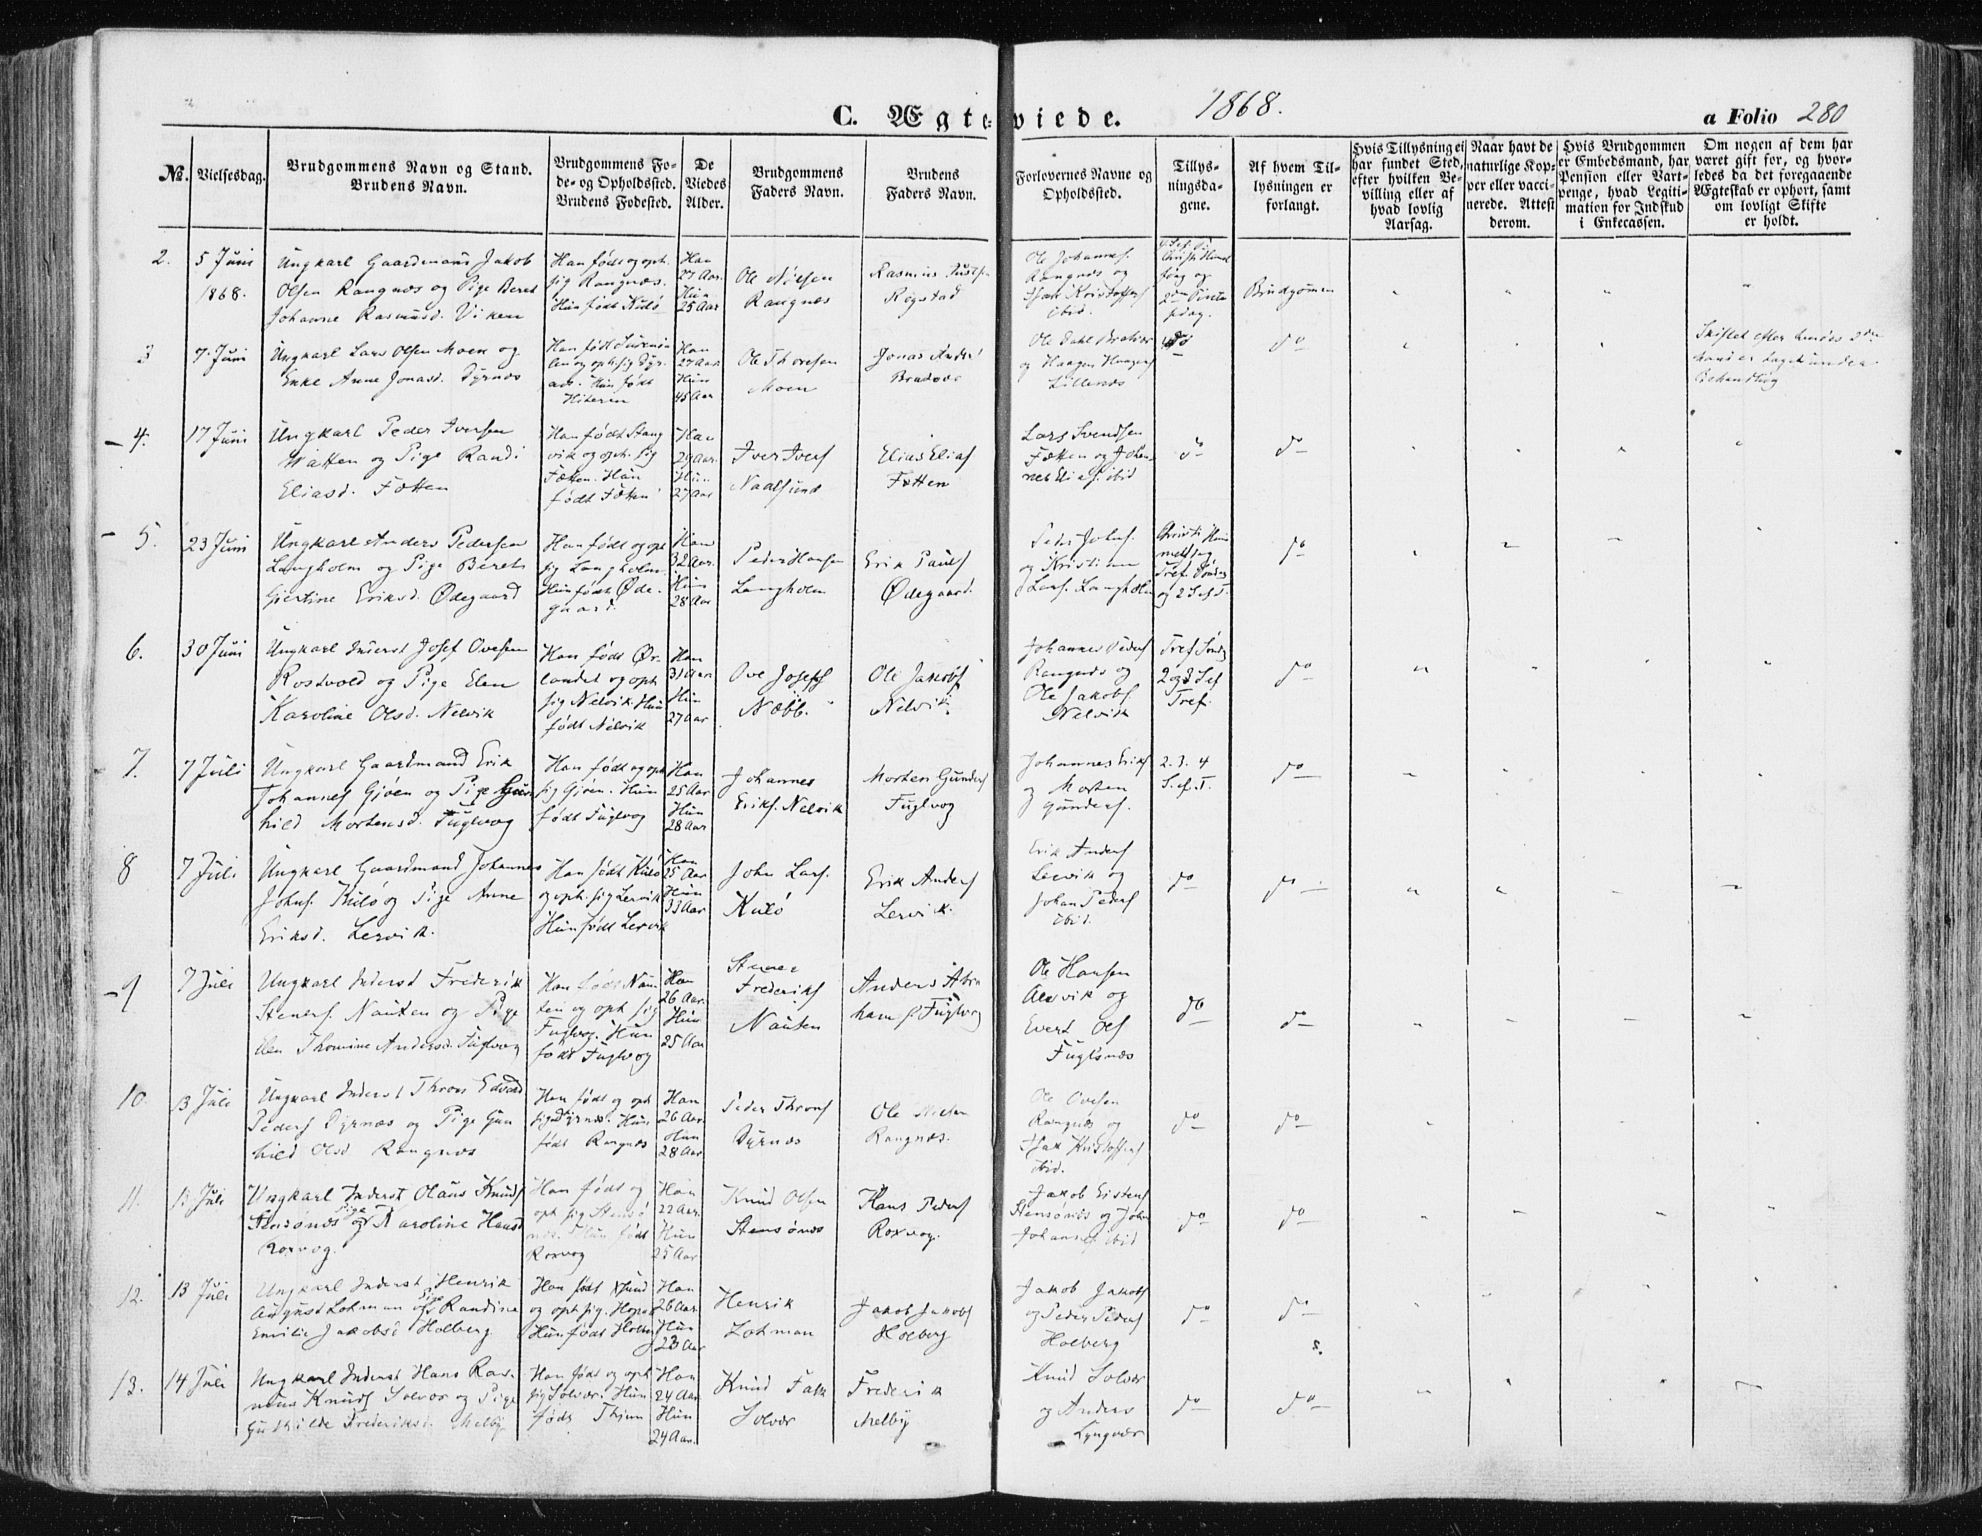 C. Ægteviede. 1868. a Folio 280
No. Vielsesdag. Brudgommens Navn og Stand. Brudens Navn. Brudgommens Fode- og Opholdssted. Brudens Fodested. De Viedes Alder. Brudgommens Faders Navn. Brudens Faders Navn. Forlovernes Navne og Opholdssted. Tillysningsdagene. Af hvem Tillysningen er forlangt.
Hvis Tillysning ei har fundet Sted, efter hvilken Bevilling eller af hvad lovlig Aarsag.
Naar havt de naturlige Kopper eller vaccinerede. Attest derom.
Hvis Brudgommen er Embedsmand, har Pension eller Vartpenge, hvad Legitimation for Indskud i Enkecassen.
Om nogen af dem har været gift for, og hvorledes da det foregaaende Ægteskab er ophort, samt om lovligt Skifte er holdt.
2. 5 Juni 1868.
Ungkarl Gaardmand Jakob
Olsen Rangnæs og Pige Beret
Johanne Rasmusd. Viken
Han født og oph.
sig Rangnæs.
Hun født Kulø
Han
27 Aar.
Hun
25 Aar
Ole Nilsen
Rangnæs
Rasmus
Rogstad
Ole Johannes.
Rangnæs og
Isak Kristoffers
ibid.
Brudgommen
3 7 Juni
Ungkarl Lars Olsen Moen og
Enke Anne Jonasd. Dyrnæs
Han
27 Aar
Hun
45 Aar
Ole Thoresen
Moen
Jonas
Ole Dahl
og Haagen Haagens
Lillenæs
do
do
Skiftet efter hendes
Mand er taget under
Behandling
4. 17 Juni
Ungkarl Peder Iversen
Watten og Pige Randi
Eliasd. Fætten
Han født Stang
vik og oph. sig
Fætten. Hun
født Fætten
Han
29 Aar.
Hun
27 Aar
Iver Ivers
Naalsund
Elias Elias
Fætten
Lars Svendsen
Fætten og Johan
nes Elias. ibid
do
do
5. 23 Juni
Ungkarl Anders Pedersen
Langholm og Pige Beret
Gjertine Eriksd. Ødegaard
Han født og oph
sig Langholm.
Hun født Øde-
gaard.
Han
32 Aar.
Hun
28 Aar
Peder Hansen
Langholm
Erik Pauls
Ødegaard.
Peder Johns.
og Kristian
Lars. Langholm
Christi Him
meldag
Tref. Søndag
og 2 S.ef.T.
do
6. 30 Juni
Ungkarl Inderst Josef Ovesen
Rostvold og Pige Elen
Karoline Olsd. Nelvik
Han født Ør-
landet og oph
sig Nelvik. Hun
født Nelvik
Han
31 Aar
Hun
27 Aar
Ove Josefs
Næbb.
Ole Jakobs
Nelvik
Johannes Peders
Rangnæs og
Ole Jakobs.
Nelvik
Tref Sønd
2 og 3 S.ef
Tref.
do
7. 7 Juli
Ungkarl Gaardmand Erik
Johannes Gjøen og Pige Gun
hild Mortensd. Fuglvog
Han født og oph
sig Gjøen. Hun
født Fuglvog
Han
25 Aar
Hun
28 Aar
Johannes
Eriks. Nelvik
Morten Gunders
Fuglvog
Johannes Eriks
og Morten
Gunders.
2. 3. 4
S.ef.T.
do
8 7 Juli
Ungkarl Gaardmand Johannes
Johns. Kulø og Pige Anne
Eriksd. Lervik.
Han født Kulø
og oph. sig Lervik
Hun født Lervik
Han
25 Aar
Hun
33 Aar
John Lars.
Kulø
Erik Anders
Lervik.
Erik Anders
Lervik og
Johan Peders
ibid.
do
do
9 7 Juli
Ungkarl Inderst Frederik
Steners. Nausten og Pige
Elen Thomine Andersd. Fuglvog
Han født Naus
ten og oph sig
Fuglvog. Hun
født Fuglvog
Han
26 Aar.
Hun
25 Aar
Stener
Frederiks
Nausten
Anders Abra
hams Fuglvog
Ole Hansen
Alvvik og
Evert Ols
Fuglsnæs
do
do
10. 13 Juli
Ungkarl Inderst Thron Edvard
Peders Dyrnæs og Pige Gun
hild Olsd Rangnæs
Han født og oph
sig Dyrnæs. Hun
født Rangnæs
Han
26 Aar.
Hun
28 Aar
Peder Throns
Dyrnæs
Ole Nielsen
Rangnæs.
Ole Ovesen
Rangnæs og
Isak Kristoffers
ibid.
do
do
11. 13 Juli
Ungkarl Inderst Olaus Knuds
Stensønæs og Pige Karoline Hansd
Roxvog.
Han født og
oph sig Stensø
næs. Hun født
Roxvog
Han
22 Aar.
Hun
25 Aar
Knud Olsen
Stensønæs
Hans Peders
Roxvog.
Jakob Eistens
Stensønæs og John
Johans. ibid
do
do
12. 13 Juli
Ungkarl Inderst Henrik
August Lohman og Pige Randine
Emilie Jakobsd Holberg
Han født Xsund
og oph sig. Hopen
Hun født Holberg
Han
26 Aar
Hun
23 Aar
Henrik
Lohman
Jakob Jakobs
Holberg
Jakob Jakobs
og Peder Peders
Holberg
do
do
13. 14 Juli
Ungkarl Inderst Hans Ras-
mus Knuds Solvær og Pige
Guthilde Frederiksd. Melby
Han født og oph
sig Solvær. Hun
født
Han
24 Aar.
Hun
24 Aar.
Knud Falk
Solvær
Frederik
Melby
Knud Solvær
og Anders
Lyngvær
do
do